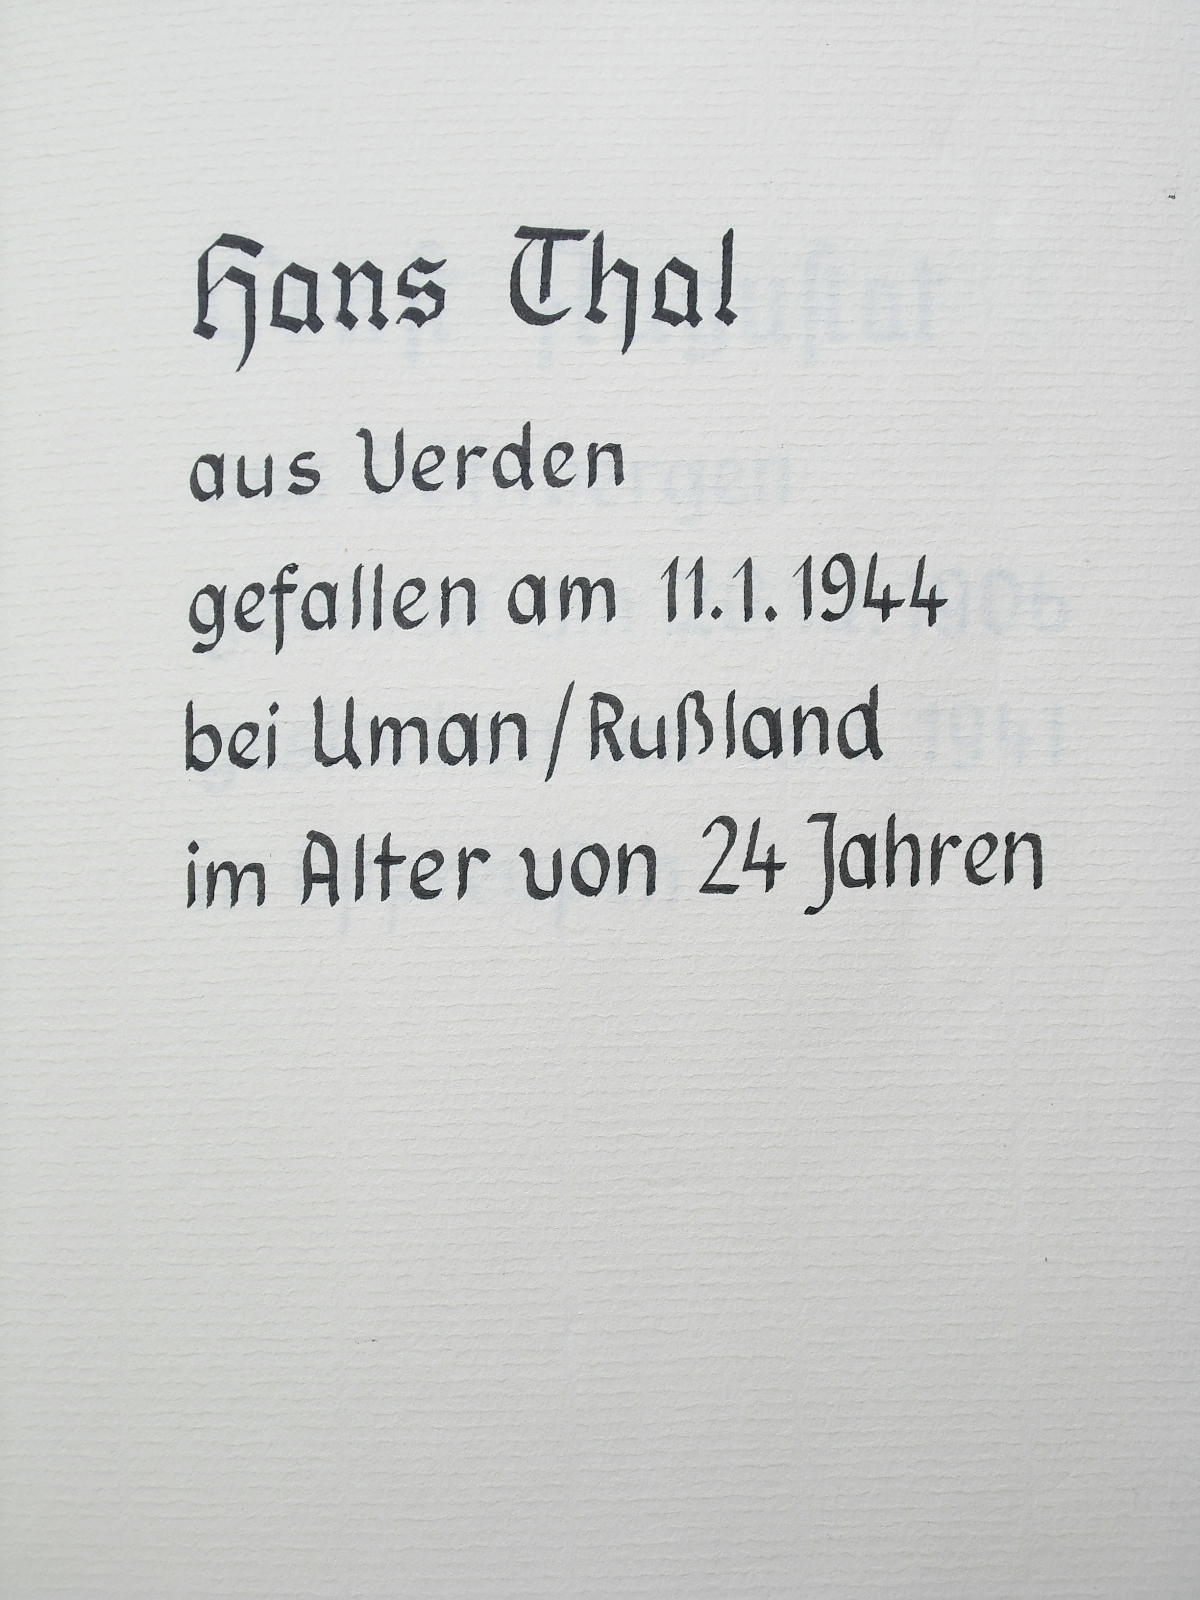 Hans Thal
aus Verden
gefallen am 11.1.1944
bei Uman/Rußland
im Alter von 24 Jahren